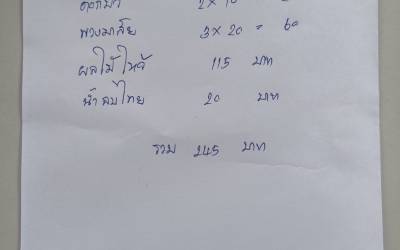 พวงมาลัย 3 x 20 = 60
ผลไม้ไหว้ 115 บาท
น้ำอบไทย 20 บาท
รวม 245 บาท